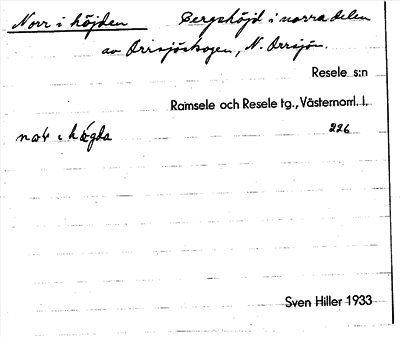 Norr i höjden Bergshöjd i norra delen
av Orrsjöskogen, N. Orrsjön.
Resele s:n
Ramsele och Resele tg., Västernorrl. l.
i högda 226
Sven Hiller 1933